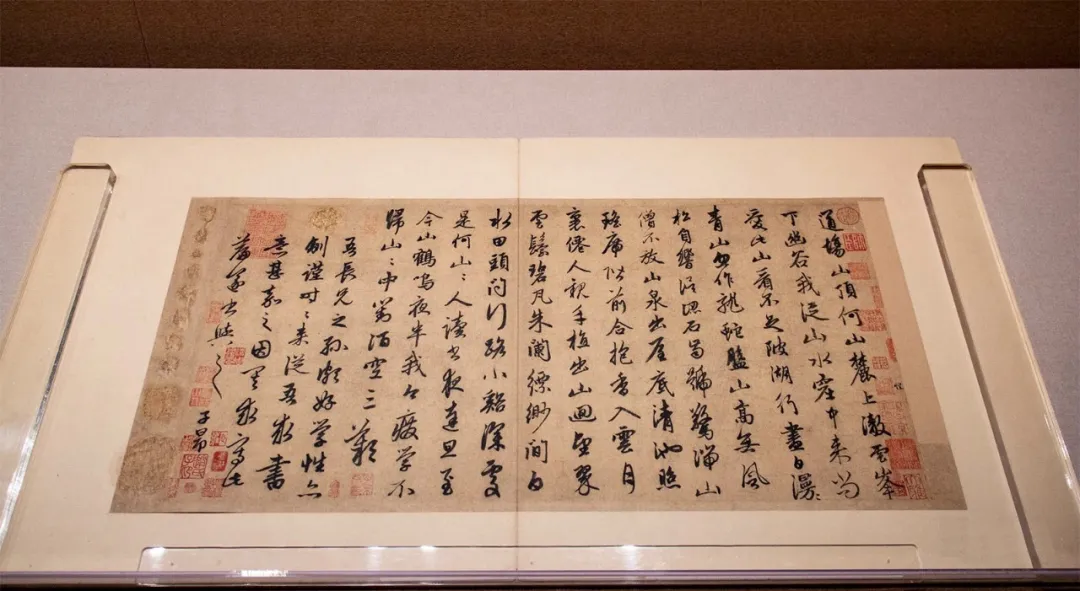 道場山頂何山麓上徹雲峯
下幽谷我從山水窟中來尚
愛此山看不足陂湖行盡白漫〻
青山忽作龍蛇盤山高無風
松自響誤認石齒號驚湍山
僧不放山泉出屋底清池照
瑤席階前合抱香入雲月
裏僊人親手植出山迴望翠
雲鬟碧瓦朱闌縹緲間白
水田頭問行路小谿深處
是何山〻人讀書夜達旦至
今山鶴鳴夜半我今廢學不
歸山〻中對酒空三歎
吾長兄之孫頗好學性亦
謹時〻來從吾求書
意甚嘉之因其求寫此
篇遂書與之
子昂